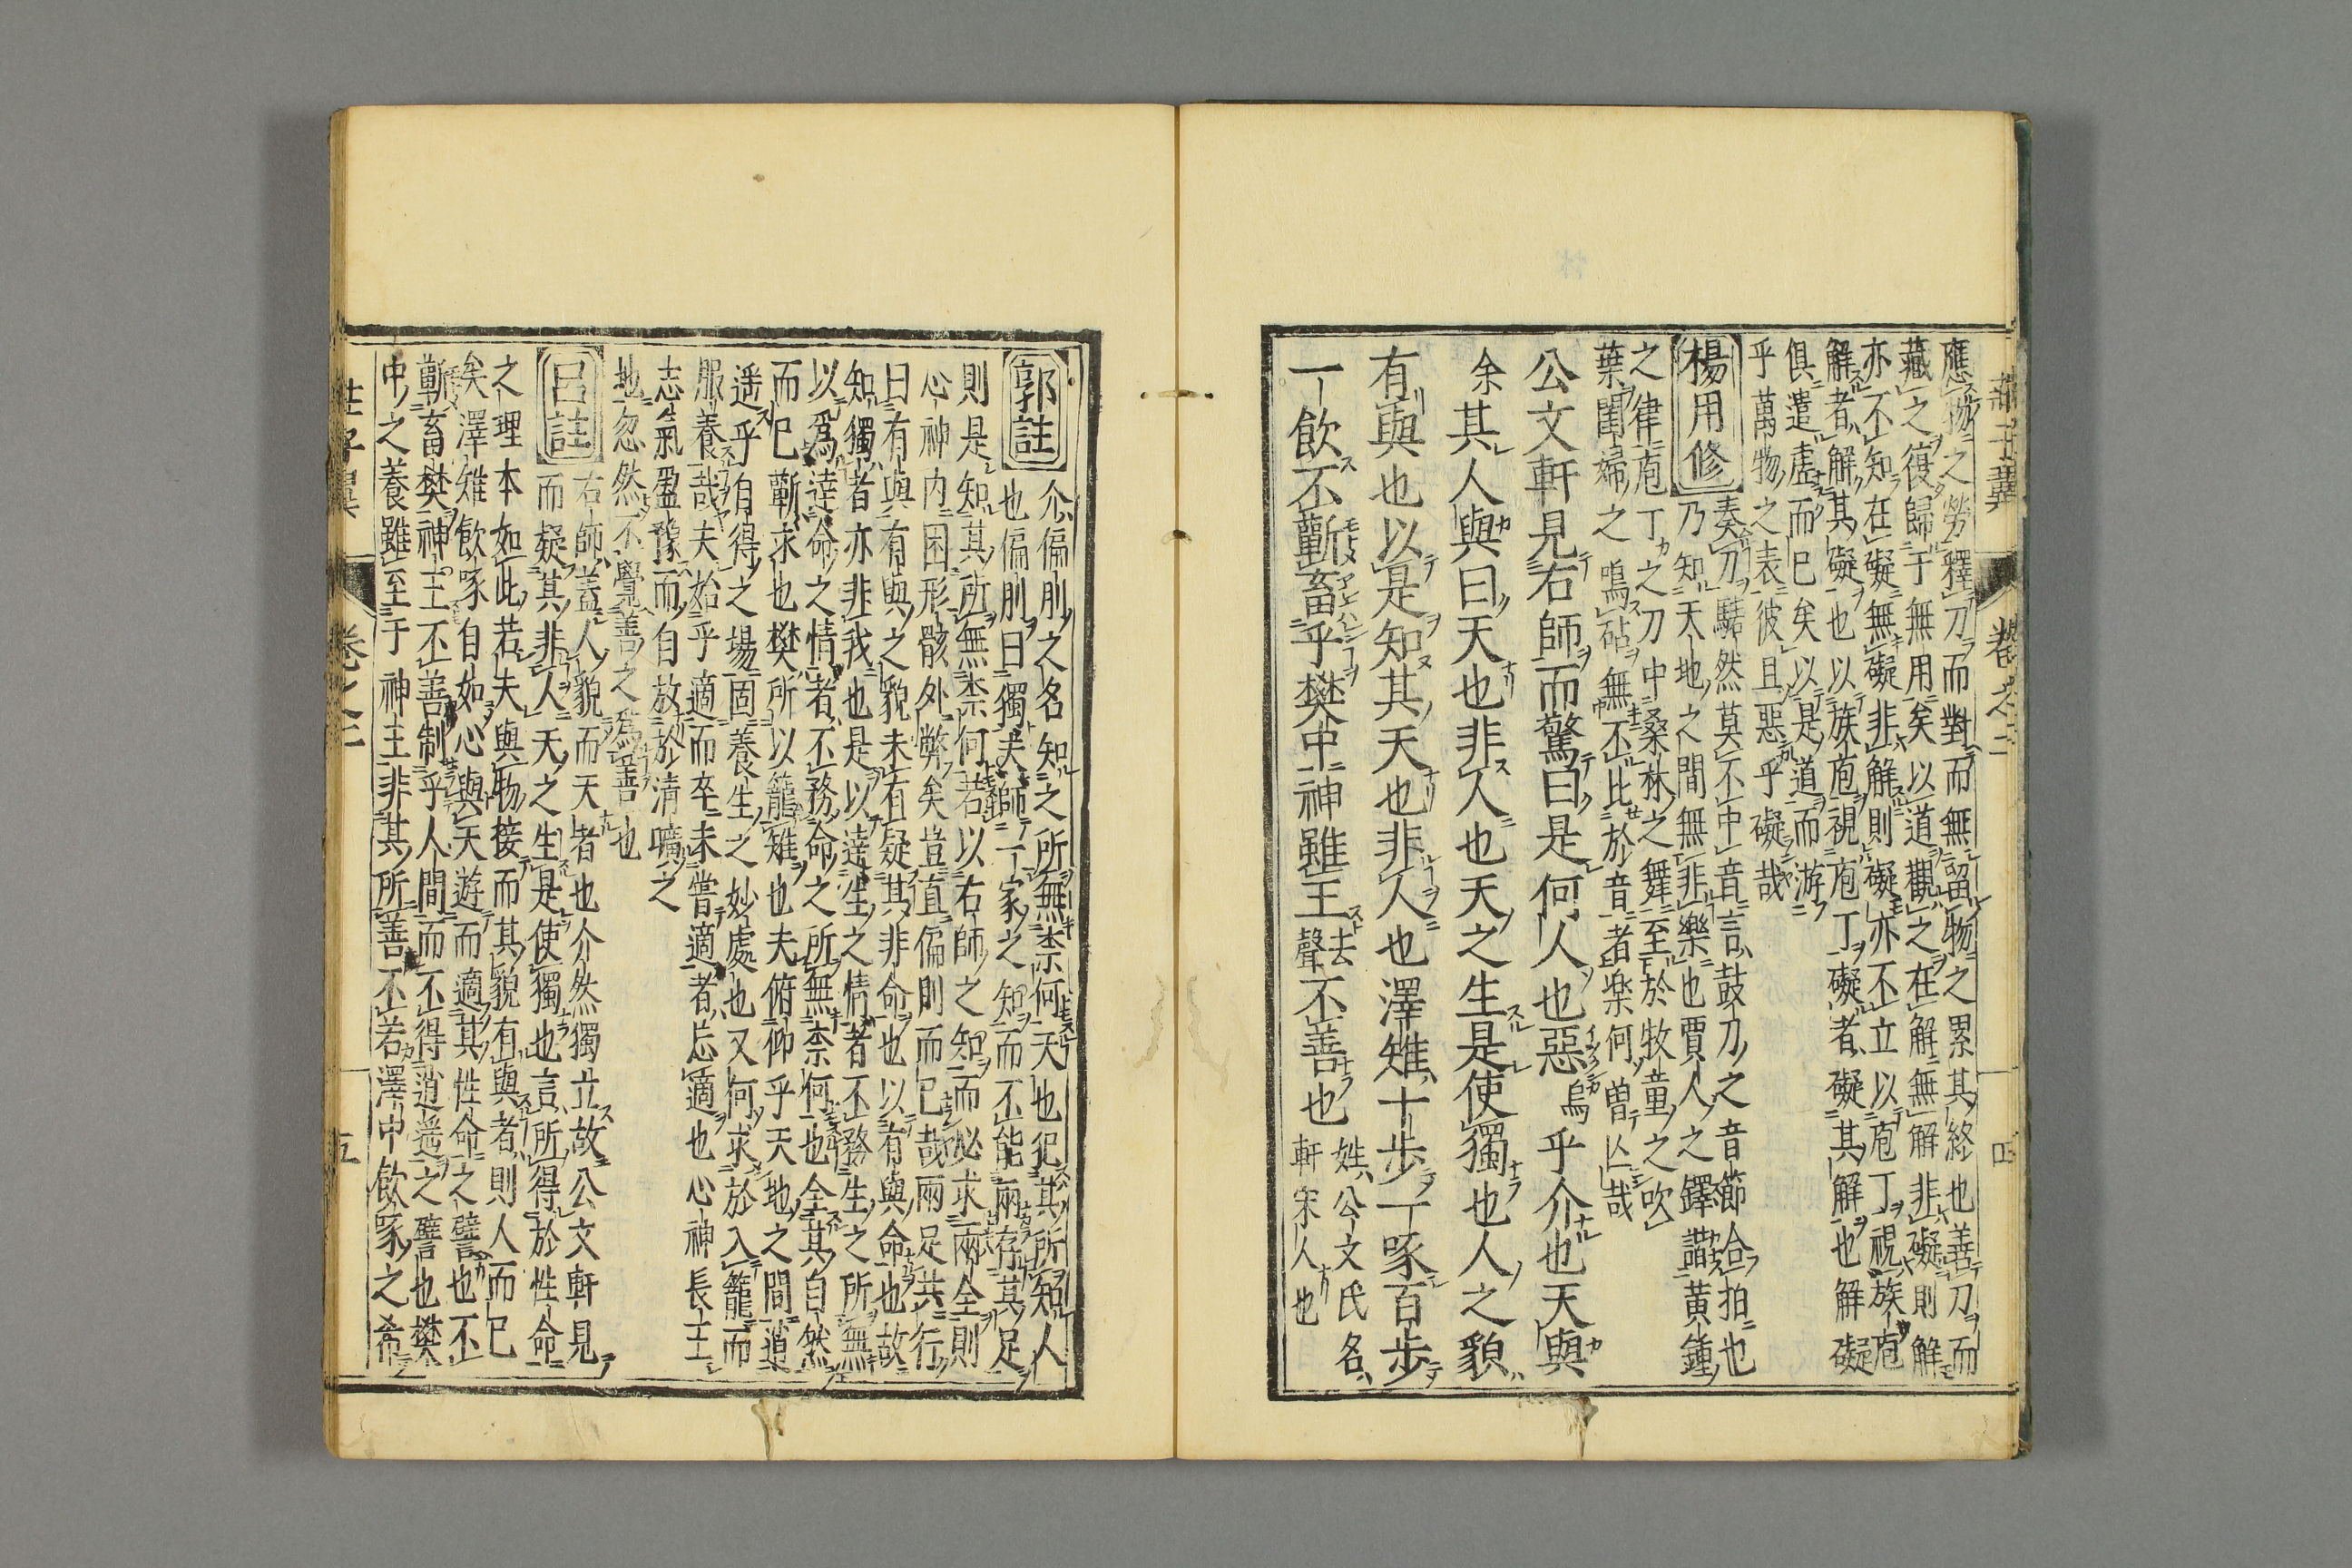 莊子翼 卷之二 四
應物之勞釋刀而對而無留物之累其終也善刀而
藏之復歸于無用矣以道觀之在解無解非礙則解
亦不知在礙無礙非解則礙亦不立以庖丁視族庖
解者解其礙也以族庖視庖丁礙者礙其解也解礙
俱遣虛而已矣以是道而游
乎萬物之表彼且惡乎礙哉
楊用修
奏刀騞然莫不中音言鼓刀之音節合拍也
乃知天地之間無非樂也賈人之鐸諧黃鍾
之律庖丁之刀中桑林之舞至於牧童之吹
葉閨婦之鳴砧無不比於音者楽何曽亾哉
公文軒見右師而驚曰是何人也惡烏乎介也天與
余其人與曰天也非人也天之生是使獨也人之貌
有與也以是知其天也非人也澤雉十步一啄百步
一飲不蘄畜乎樊中神雖王去聲不善也姓公文氏名軒宋人也
郭註
介偏刖之名知之所無柰何天也犯其所知人
也偏刖曰獨夫師一家之知而不能兩存其足
則是知其所無柰何若以右師之知而必求兩全則
心神内困形骸外弊矣豈直偏刖而已哉兩足共行
曰有與有與之貌未有疑其非命也以有與命也故
知獨者亦非我也是以達生之情者不務生之所無
以爲達命之情者不務命之所無柰何也全其自然
而已蘄求也樊所以籠雉也夫俯仰乎天地之間逍
遥乎自得之場固養生之妙處也又何求於入籠而
服養哉夫始乎適而卒未嘗適者忘適也心神長王
志氣盈豫而自放於清曠之
地忽然不覺善之爲善也
呂註
右師蓋人貌而天者也介然獨立故公文軒見
而疑其非人天之生是使獨也言所得於性命
之理本如此若夫與物接而其貌有與者則人而已
矣澤雉飲啄自如心與天遊而適其性命之譬也不
蘄畜樊神王不善制乎人間而不得逍遥之譬也樊
中之養雖至于神王非其所善不若澤中飲啄之希
莊子翼 卷之二 五